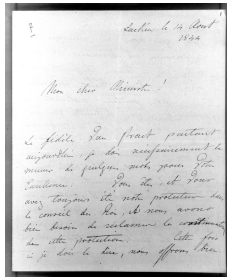 le 14 Août
1844
Mon cher Ministre !
Le fidèle partant
aujourd'hui, je
de quelques mots pour Votre
Excellence. Vous êtes, et Vous
avez toujours été notre protecteur dans
le conseil du Roi, et nous avons
bien besoin de réclamer la
de cette protection. Cette fois
ci je dois le dire, nous offrons bien